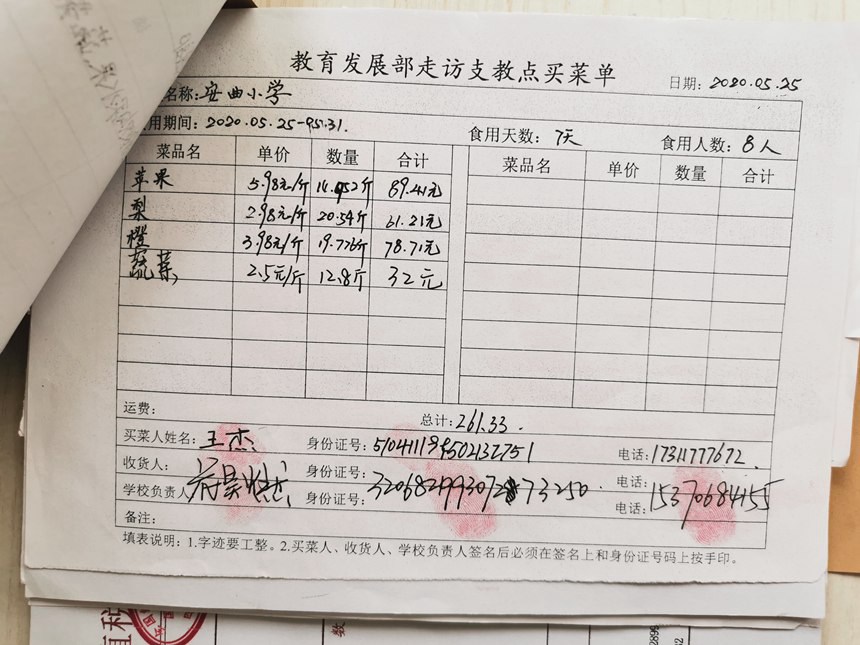 教育发展部走访支教点买菜单
日期: 2020.05.25
名称: 安曲小学
用期间: 2020.05.25-05.31.
食用天数: 7天 食用人数: 8人
菜品名 单价 数量 合计 菜品名 单价 数量 合计
苹果 5.98元/斤 14.952斤 89.41元
梨 2.98元/斤 20.54斤 61.21元
橙 3.98元/斤 19.776斤 78.71元
蔬菜 2.5元/斤 12.8斤 32元
运费: 总计: 261.33.
买菜人姓名: 王杰 身份证号: 电话: 17311777672.
收货人: 身份证号: 电话: 15370684155
学校负责人 身份证号: 电话:
备注:
填表说明: 1.字迹要工整。2.买菜人、收货人、学校负责人签名后必须在签名上和身份证号码上按手印。